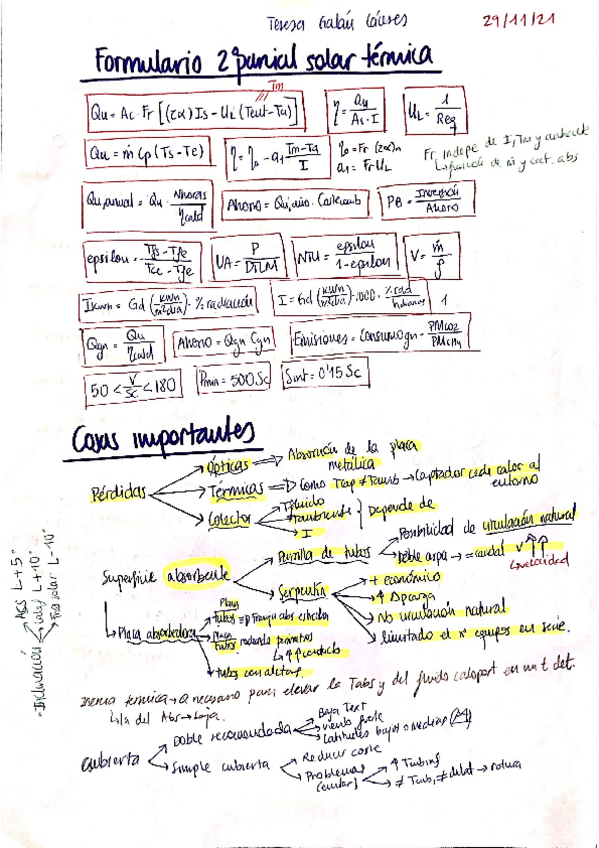 Teresa Galán Cáceres 29/11/21
Formulario 2º parcial solar térmica
Qu = Ac · Fr [(τα) Is - UL (Tent - Ta)] Tm
η = Qu / Ac · I
UL = 1 / Req
Qu = ṁ Cp (Ts - Te)
η = η₀ - a₁ (Tm - Ta) / I
η₀ = Fr (τα)n
a₁ = Fr UL
Fr indepe de I, Tm y ambiente
función de ṁ y cact. abs
Qu,anual = Qu · Nhoras / ηcald
Ahorro = Qu,año · Costecomb
PB = Inversión / Ahorro
epsilon = (Tfs - Tfe) / (Tce - Tfe)
UA = P / DTLM
NTU = epsilon / (1 - epsilon)
V = ṁ / ρ
Ikwh = Gd (kwh / m²día) · % radiación
I = Gd (kwh / m²día) · 1000 · % rad / hdiarias
1
Qgn = Qu / ηcald
Ahorro = Qgn Cgn
Emisiones = Consumogn · PMCO2 / PMCH4
50 < V / Sc < 180
Pmin = 500 Sc
Sint = 0'15 Sc
Cosas importantes
Pérdidas
Ópticas ⇒ Absorción de la placa metálica
Térmicas ⇒ Como Tcap ≠ Tamb → Captador cede calor al entorno
Colector
Tfluido
Tambiente
I
Depende de
Superficie absorbente
Parrilla de tubos
Posibilidad de circulación natural
Doble arpa → = caudal V ↑↑
velocidad
Serpentín
+ económico
↑ Δpcarga
No circulación natural
limitado el nº equipos en serie.
Placa absorbedora
Placa tubos
placa tubos rodeando perímetro
↑↑ conducto
tubos con aletas.
Inclinación
ACS L+5°
Calef L+10°
Frío solar L-10°
Inercia térmica → Q necesario para elevar la Tabs y del fluido caloport en un t det.
la del Abs → baja.
Cubierta
Doble recomendada
Baja Text
viento fuerte
Latitudes bajas o medias
Simple cubierta
Reducir coste
Problemas (evitar)
↑ Turbins
≠ Tcub, ≠ dilat → rotura